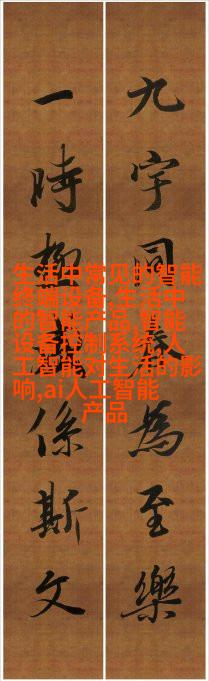 九宇同春為至樂
一時係斯文
生活中常见的智能
终端设备,生活中
的智能产品,智能
设备控制系统,人
工智能对生活的影
响,ai人工智能
产品